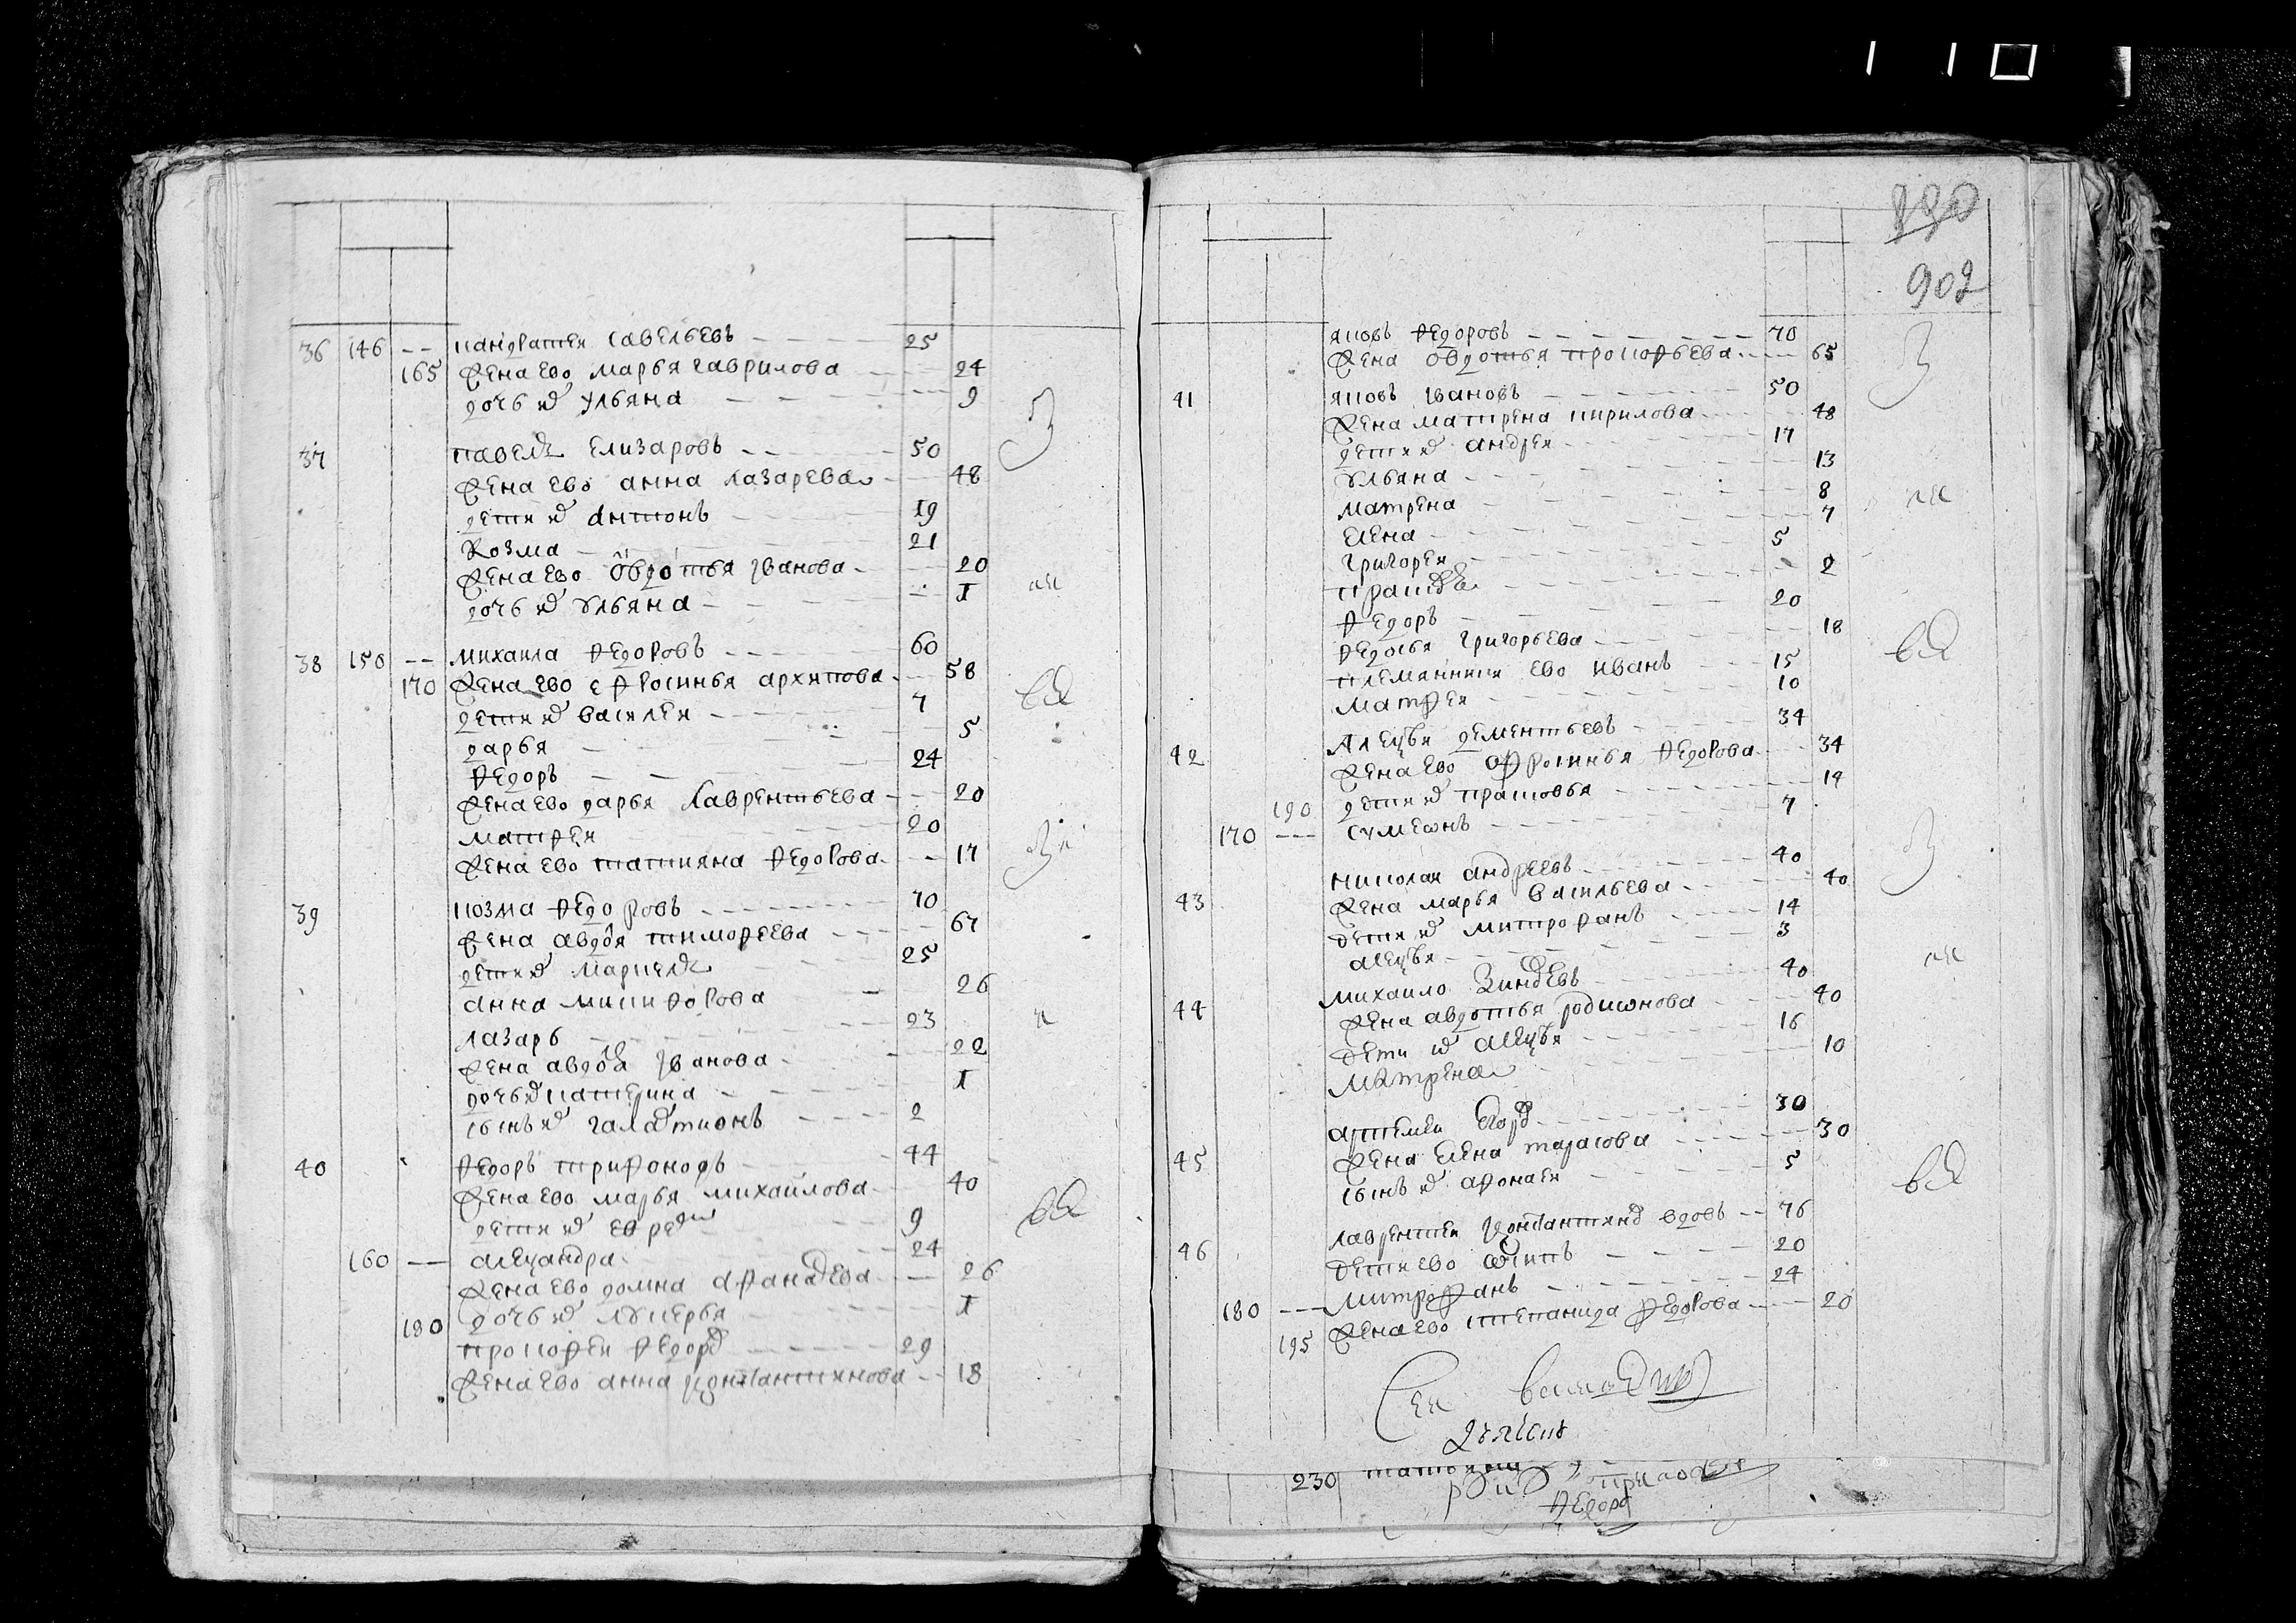 36 146 -- кандратеи савельевъ 25
165 жена ево марья гаврилова 24
дочь их ульяна 9
37 павелъ елизаровъ 50
жена ево анна лазарева 48
дети их антонъ 19
козма 21
жена ево овдотья іванова 20
дочь их ульяна 1
38 150 -- михаила федоровъ 60
170 жена ево ефросинья архипова 58
дети их василеи 7
дарья 5
федоръ 24
жена ево дарья лаврентьева 20
матфеи 20
жена ево татияна федорова 17
39 козма федоровъ 70
жена авдотя тимофеева 67
дети их маркелъ 25
анна никифорова 26
лазарь 23
жена авдотя іванова 22
дочь их катерина 1
сынъ их галактионъ 2
40 федоръ трифоновъ 44
жена ево марья михаилова 40
дети их 9
160 -- алеѯандра 24
жена ево домна афанасева 26
180 дочь их лукерья 1
прокофеи федоров 29
жена ево анна константинова 18
890
902
яковъ федоровъ 70
жена овдотья прокофьева 65
41 яковъ івановъ 50
жена матрена кирилова 48
дети их андреи 17
ульяна 13
матрена 8
елена 7
григореи 5
праскове 2
федоръ 20
федосья григорьева 18
племянники ево иванъ 15
матфеи 10
42 алеѯѣя дементьевъ 34
жена ево офросинья федорова 34
190 дети их прасковья 14
170 --- сумеонъ 7
43 николаи андреевъ 40
жена марья васильева 40
дети их митрофанъ 14
алеѯѣя 3
44 михаило 40
жена авдотья родионова 40
дети их алеѯѣя 16
матрена 10
45 артемеи егоров 30
жена елена тарасова 30
сынъ их афонасеи 5
46 лаврентеи константинов вдовъ 76
дети ево осипъ 20
180 --- митрофанъ 24
195 жена ево степанида федорова 20
230 татьяна
федоров